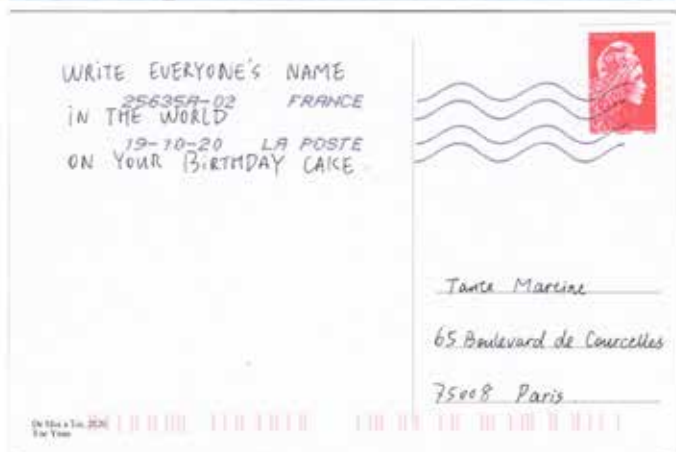 WRITE EVERYONE'S NAME
25635A-02 FRANCE
IN THE WORLD
19-10-20 LA POSTE
ON YOUR BIRTHDAY CAKE
Tante Martine
65 Boulevard de Courcelles
75008 Paris
De Moi à Toi, 2020